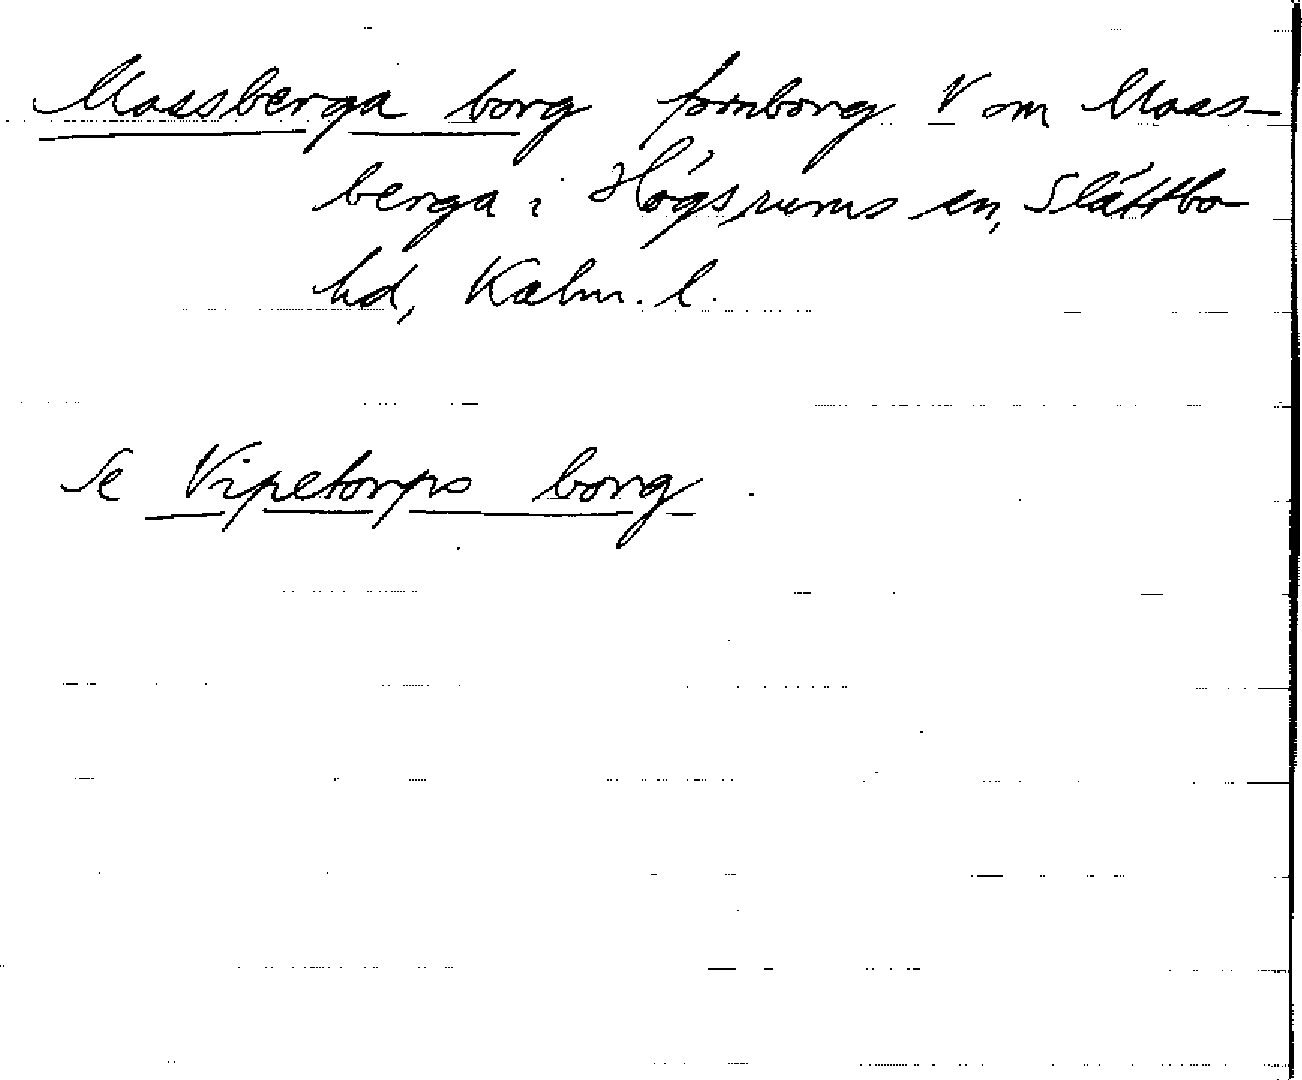 Massberga borg fornborg V om Mass-
berga i Högsrums sn, Slättbo
hd, Kalm. l.
Se Vipetorps borg.